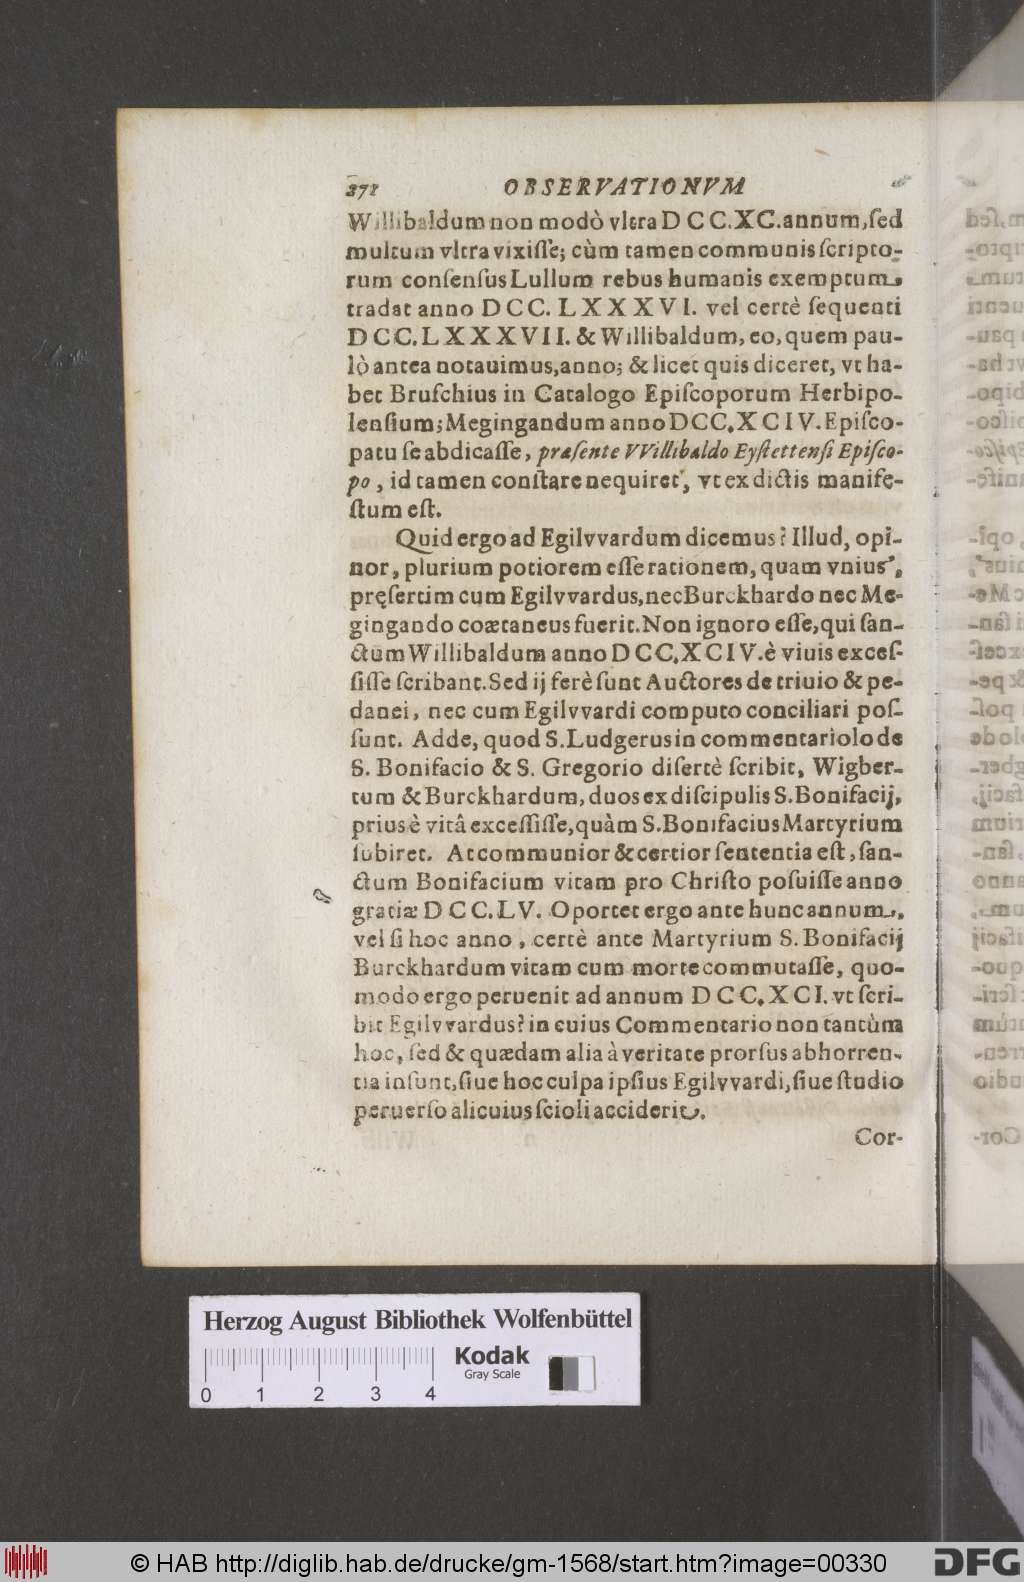 271 OBSERVATIONVM
Willibaldum non modò vltra DCC.XC. annum, ſed
multum vltra vixiſſe; cùm tamen communis ſcripto-
rum conſenſus Lullum rebus humanis exemptum
tradat anno DCC. LXXXVI. vel certè ſequenti
DCC. LXXXVII. & Willibaldum, eo, quem pau-
lò antea notauimus, anno; & licet quis diceret, vt ha-
bet Bruſchius in Catalogo Epiſcoporum Herbipo-
lenſium; Megingandum anno DCC.XCIV. Epiſco-
patu ſe abdicaſſe, præſente VVillibaldo Eyſtettenſi Epiſco-
po, id tamen conſtare nequiret, vt ex dictis manife-
ſtum eſt.
Quid ergo ad Egilvvardum dicemus? Illud, opi-
nor, plurium potiorem eſſe rationem, quam vnius,
pręſertim cum Egilvvardus, nec Burckhardo nec Me-
gingando coætaneus fuerit. Non ignoro eſſe, qui ſan-
ctum Willibaldum anno DCC.XCIV. è viuis exceſ-
ſiſſe ſcribant. Sed ij ferè ſunt Auctores de triuio & pe-
danei, nec cum Egilvvardi computo conciliari poſ-
ſunt. Adde, quod S. Ludgerus in commentariolo de
S. Bonifacio & S. Gregorio diſertè ſcribit, Wigber-
tum & Burckhardum, duos ex diſcipulis S. Bonifacij,
prius è vitâ exceſſiſſe, quàm S. Bonifacius Martyrium
ſubiret. At communior & certior ſententia eſt, ſan-
ctum Bonifacium vitam pro Chriſto poſuiſſe anno
gratiæ DCC.LV. Oportet ergo ante hunc annum,
vel ſi hoc anno, certè ante Martyrium S. Bonifacij
Burckhardum vitam cum morte commutaſſe, quo-
modo ergo peruenit ad annum DCC.XCI. vt ſcri-
bit Egilvvardus? in cuius Commentario non tantùm
hoc, ſed & quædam alia à veritate prorſus abhorren-
tia inſunt, ſiue hoc culpa ipſius Egilvvardi, ſiue ſtudio
peruerſo alicuius ſcioli acciderit.
Cor-
Herzog August Bibliothek Wolfenbüttel
Kodak
Gray Scale
0 1 2 3 4
© HAB http://diglib.hab.de/drucke/gm-1568/start.htm?image=00330
DFG